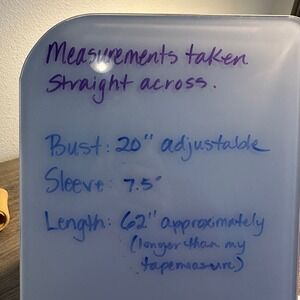 Measurements taken
straight across.
Bust: 20" adjustable
Sleeve: 7.5"
Length: 62" approximately
(longer than my
tapemeasure)